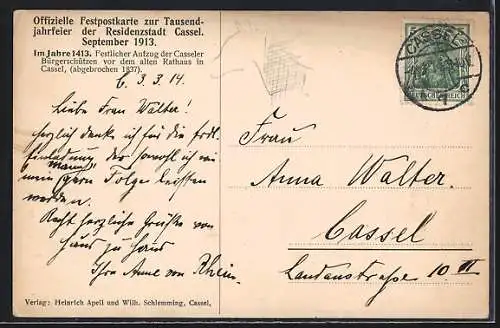 Offizielle Festpostkarte zur Tausend-
jahrfeier der Residenzstadt Cassel.
September 1913.
Im Jahre 1413. Festlicher Aufzug der Casseler
Bürgerschützen vor dem alten Rathaus in
Cassel, (abgebrochen 1837).
C. 3.3.14.
Liebe Frau Walter!
Herzlich danke ich für die frdl.
Einladung der sowohl ich wie
mein Mann gern Folge leisten
werden.
Recht herzliche Grüße von
Haus zu Haus
Ihre Anne von Rhein.
Verlag: Heinrich Apell und Wilh. Schlemming, Cassel.
CASSEL
DEUTSCHES REICH
Frau
Anna Walter.
Cassel
Landaustraße 10 II